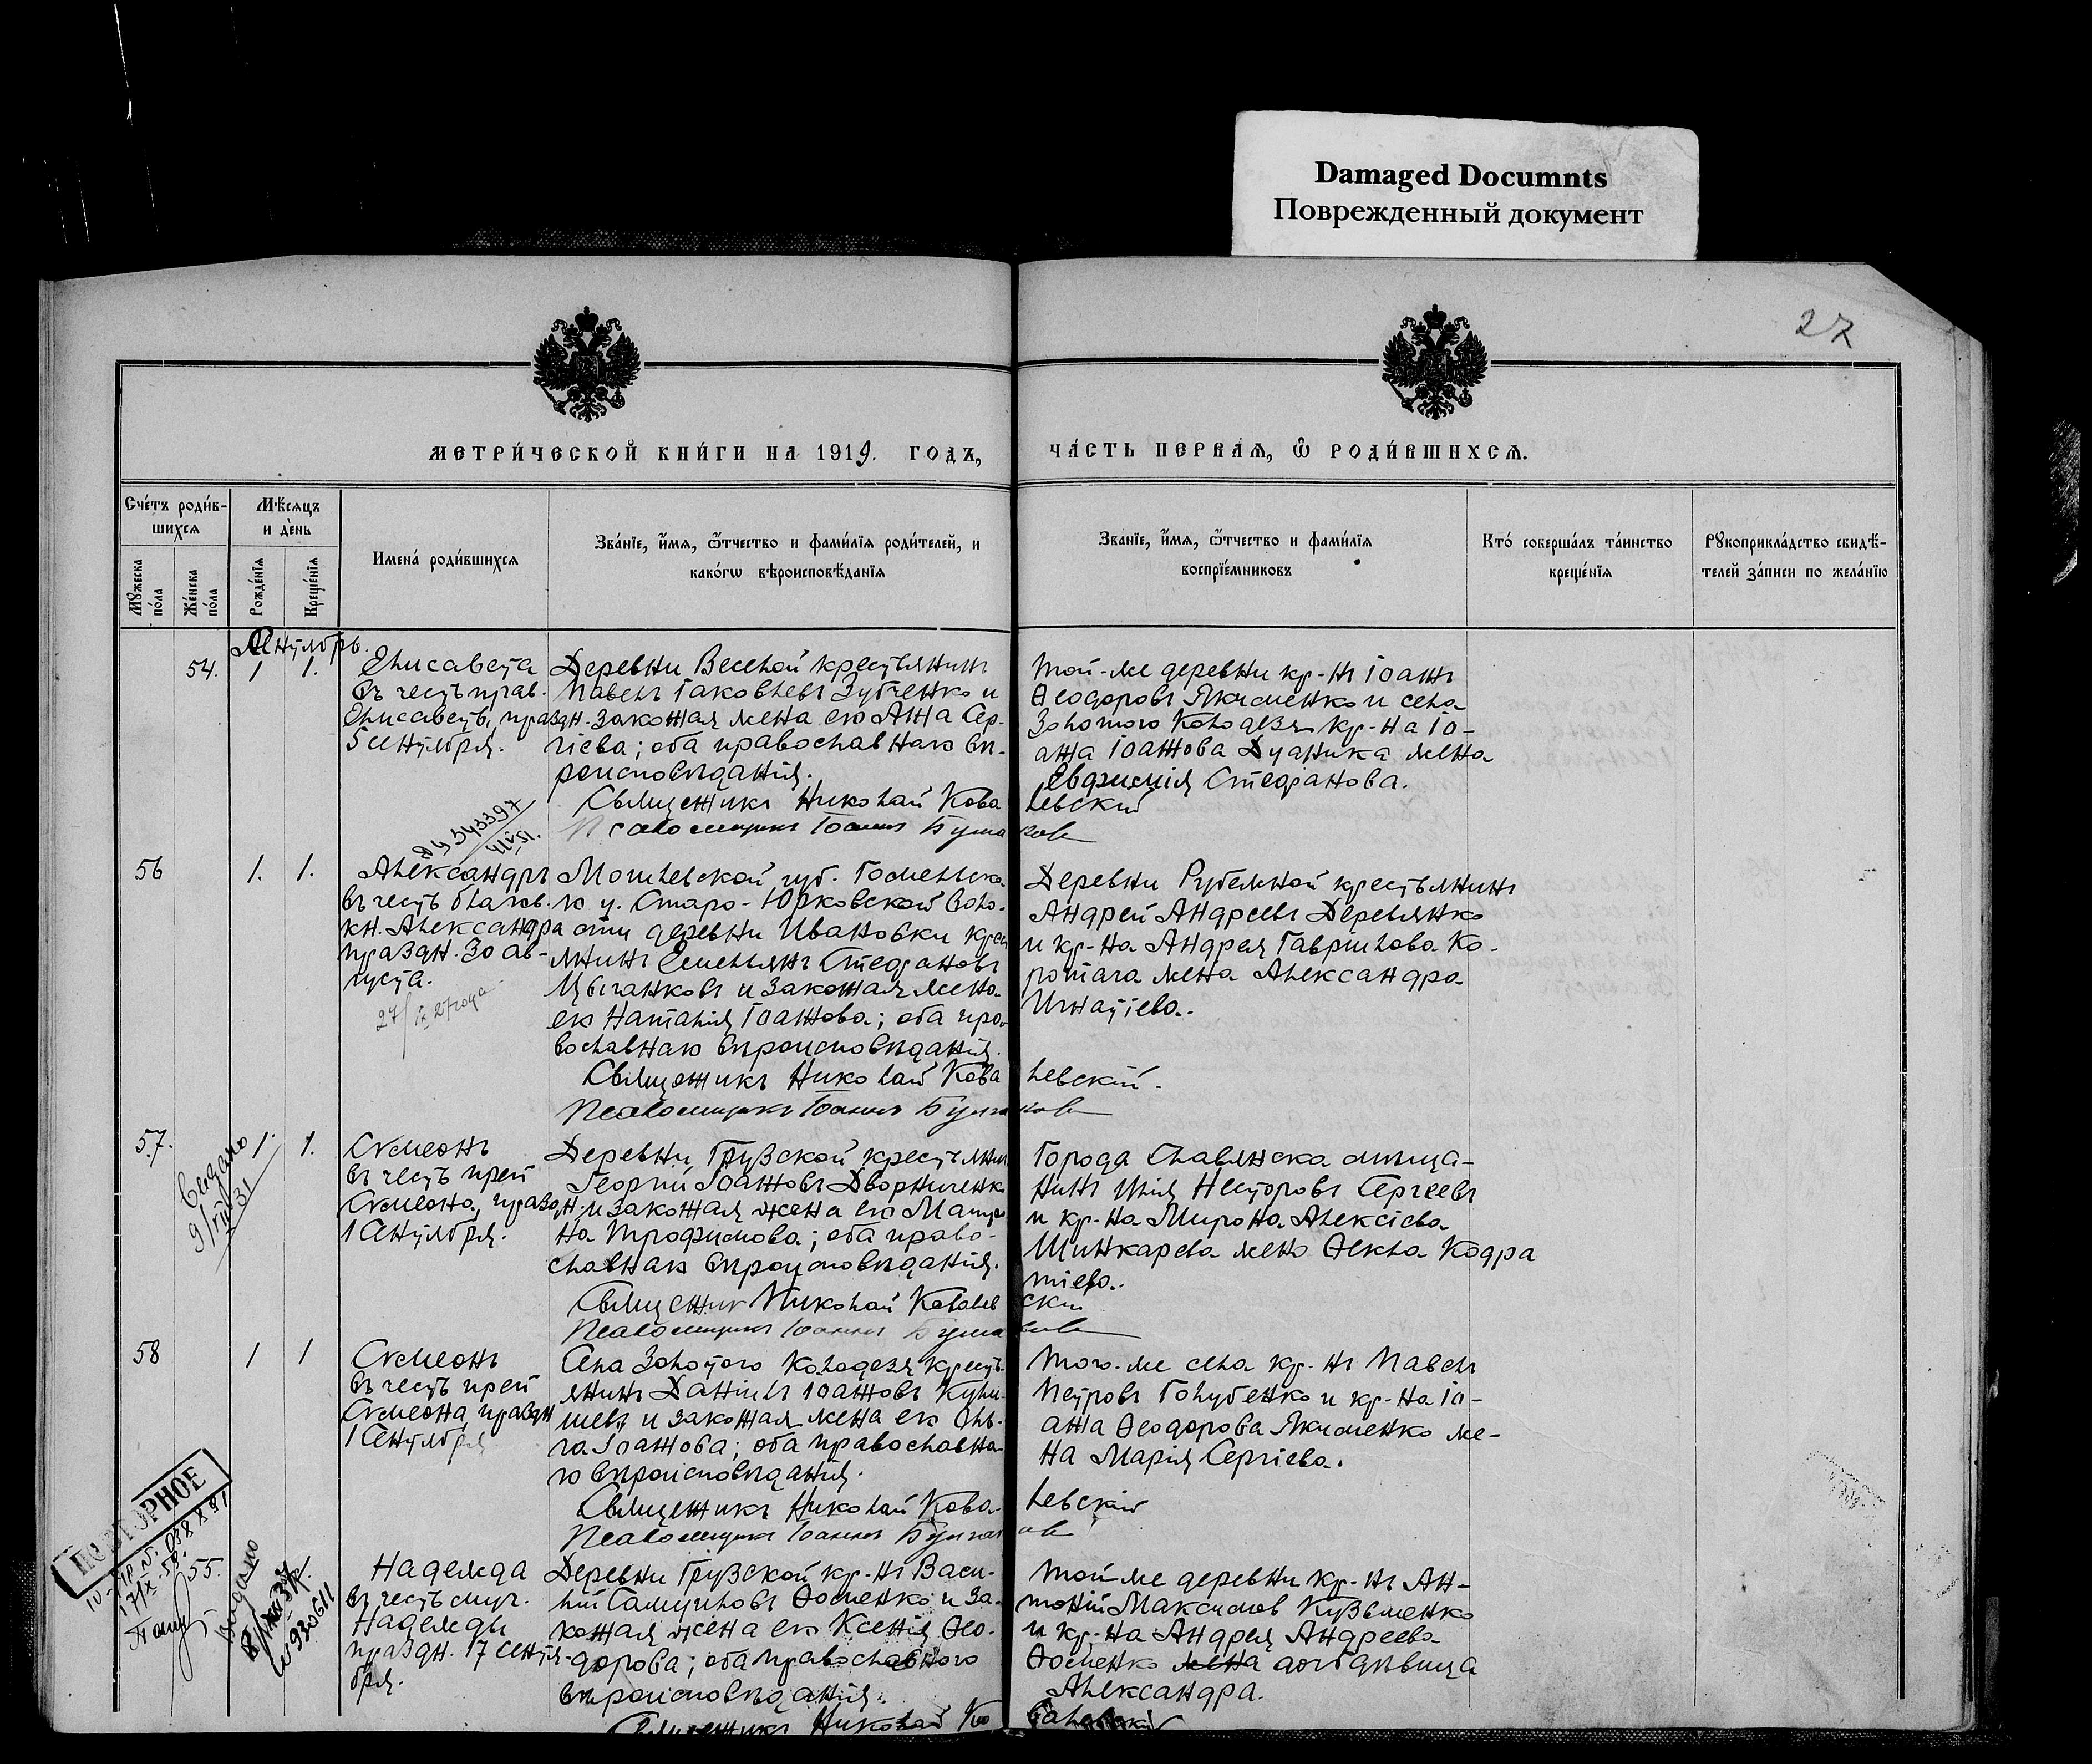 Damaged Documnts
Поврежденный документ
27
МЕТРИ́ЧЕСКОЙ КНИ́ГИ НА 1919. ГОДЪ,
ЧА́СТЬ ПЕРВАѦ, Ѽ РОДИ́ВШИХСѦ.
Сче́тъ роди́в-
шихсѧ
Мѣ́сѧцъ
и де́нь
Мꙋжеска по́ла
Же́нска по́ла
Рожде́нїѧ
Креще́нїѧ
Имена́ роди́вшихсѧ
Зва́нїе, и́мѧ, ѻ́тчество и фами́лїѧ роди́телей, и
како́гѡ вѣроисповѣ́данїѧ
Зва́нїе, и́мѧ, ѻ́тчество и фами́лїѧ
воспрїе́мниковъ
Кто́ соверша́лъ та́инство
креще́нїѧ
Рꙋкоприкла́дство свидѣ́-
телей за́писи по жела́нїю
Сентябрь.
54. 1 1.
Елисавета
въ честь прав.
Елисаветы, праздн.
5 сентября.
Деревни Веселой крестьянинъ
Павелъ Іаковлевъ Зубченко и
законная жена его Анна Сер-
гіева; оба православнаго вѣ-
роисповѣданія.
Той-же деревни кр-нъ Іоаннъ
Ѳеодоровъ Якименко и села
Золотого Колодезя кр-на Іо-
анна Іоаннова жена
Евфимія Стефанова.
Священникъ Николай Ковалевский
Псаломщикъ Іоаннъ
56 1. 1.
Александръ
въ честь благов.
кн. Александра
праздн. 30 ав-
густа.
Могилевской губ. Гомельска-
го у. Старо-Юрковской воло-
сти деревни Ивановки крес
янинъ Емельянъ Стефановъ
Цыганковъ и законная жена
его Наталія Іоаннова; оба пра-
вославнаго вѣроисповѣданія.
Деревни Рубежной крестьянинъ
Андрей Андреевъ Деревянко
и кр-на Андрея Гавріилова Ко-
ротача жена Александра
Игнатіева.
Священникъ Николай Ковалевскій.
Псаломщикъ Іоаннъ
57. 1. 1.
Сѵмеонъ
въ честь преп
Сѵмеона, праздн.
1 Сентября.
Деревни Грузской крестьянин
Георгій Іоанновъ Дворниченко
и законная жена его Матро
на Трофимова; оба право-
славнаго вѣроисповѣданія.
Города Славянска мѣща-
нинъ Илія Несторовъ Сергеевъ
и кр-на Мирона Алексіева
Шинкарева жена Ѳекла Кодра
тіева.
Священник Николай Ковалевский
Псаломщикъ Іоаннъ
58 1 1
Сѵмеонъ
въ честь преп
Сѵмеона, праздн
1 Сентября
Села Золотого Колодезя кресть-
янинъ Даніилъ Іоанновъ
и законная жена его Оль-
га Іоаннова; оба православна-
го вѣроисповѣданія.
Того-же села кр-нъ Павелъ
Петровъ Голубенко и кр-на Іо-
анна Ѳеодорова Якименко же-
на Марія Сергіева.
Священникъ Николай Ковалевскій
Псаломщикъ Іоаннъ
ПОВТОРНОЕ
55.
Надежда
въ честь муч.
Надежды
праздн. 17 сентя-
бря.
Деревни Грузской кр-нъ Васи-
лій Самуиловъ Ѳоменко и за-
конная жена его Ксенія Ѳео-
дорова; оба православного
вѣроисповѣданія.
Той-же деревни кр-нъ Ан-
тоній Максимов Кузьменко
и кр-на Андрея Андреева
Ѳоменко жена дочь дѣвица
Александра.
Священникъ Николай Ковалевскій